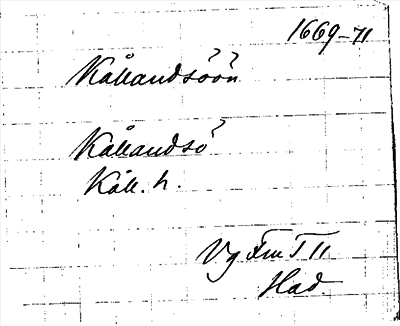 1669-71
Kållandsöön
Kållandsö
Kåll. h.
Vg Fm T 11
Had.